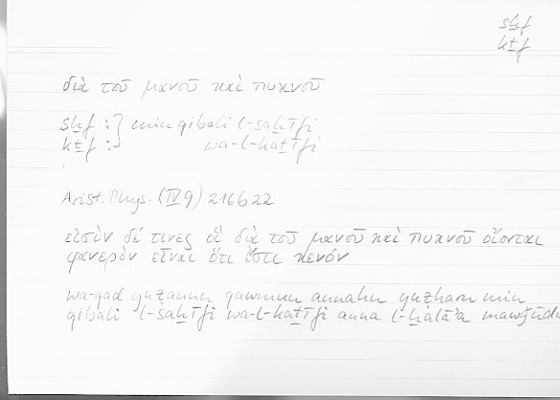 sḫf
kṯf
διὰ τοῦ μανοῦ καὶ πυκνοῦ
sḫf :} min qibali l-saḫīfi
kṯf : wa-l-kaṯīfi
Arist. Phys. (IV 9) 216b22
εἰσὶν δέ τινες οἳ διὰ τοῦ μανοῦ καὶ πυκνοῦ οἴονται
φανερὸν εἶναι ὅτι ἔστι κενόν
wa-qad yaẓunnu qawmun annahu yaẓharu min
qibali l-saḫīfi wa-l-kaṯīfi anna l-ḫalāʾa mawǧūdun